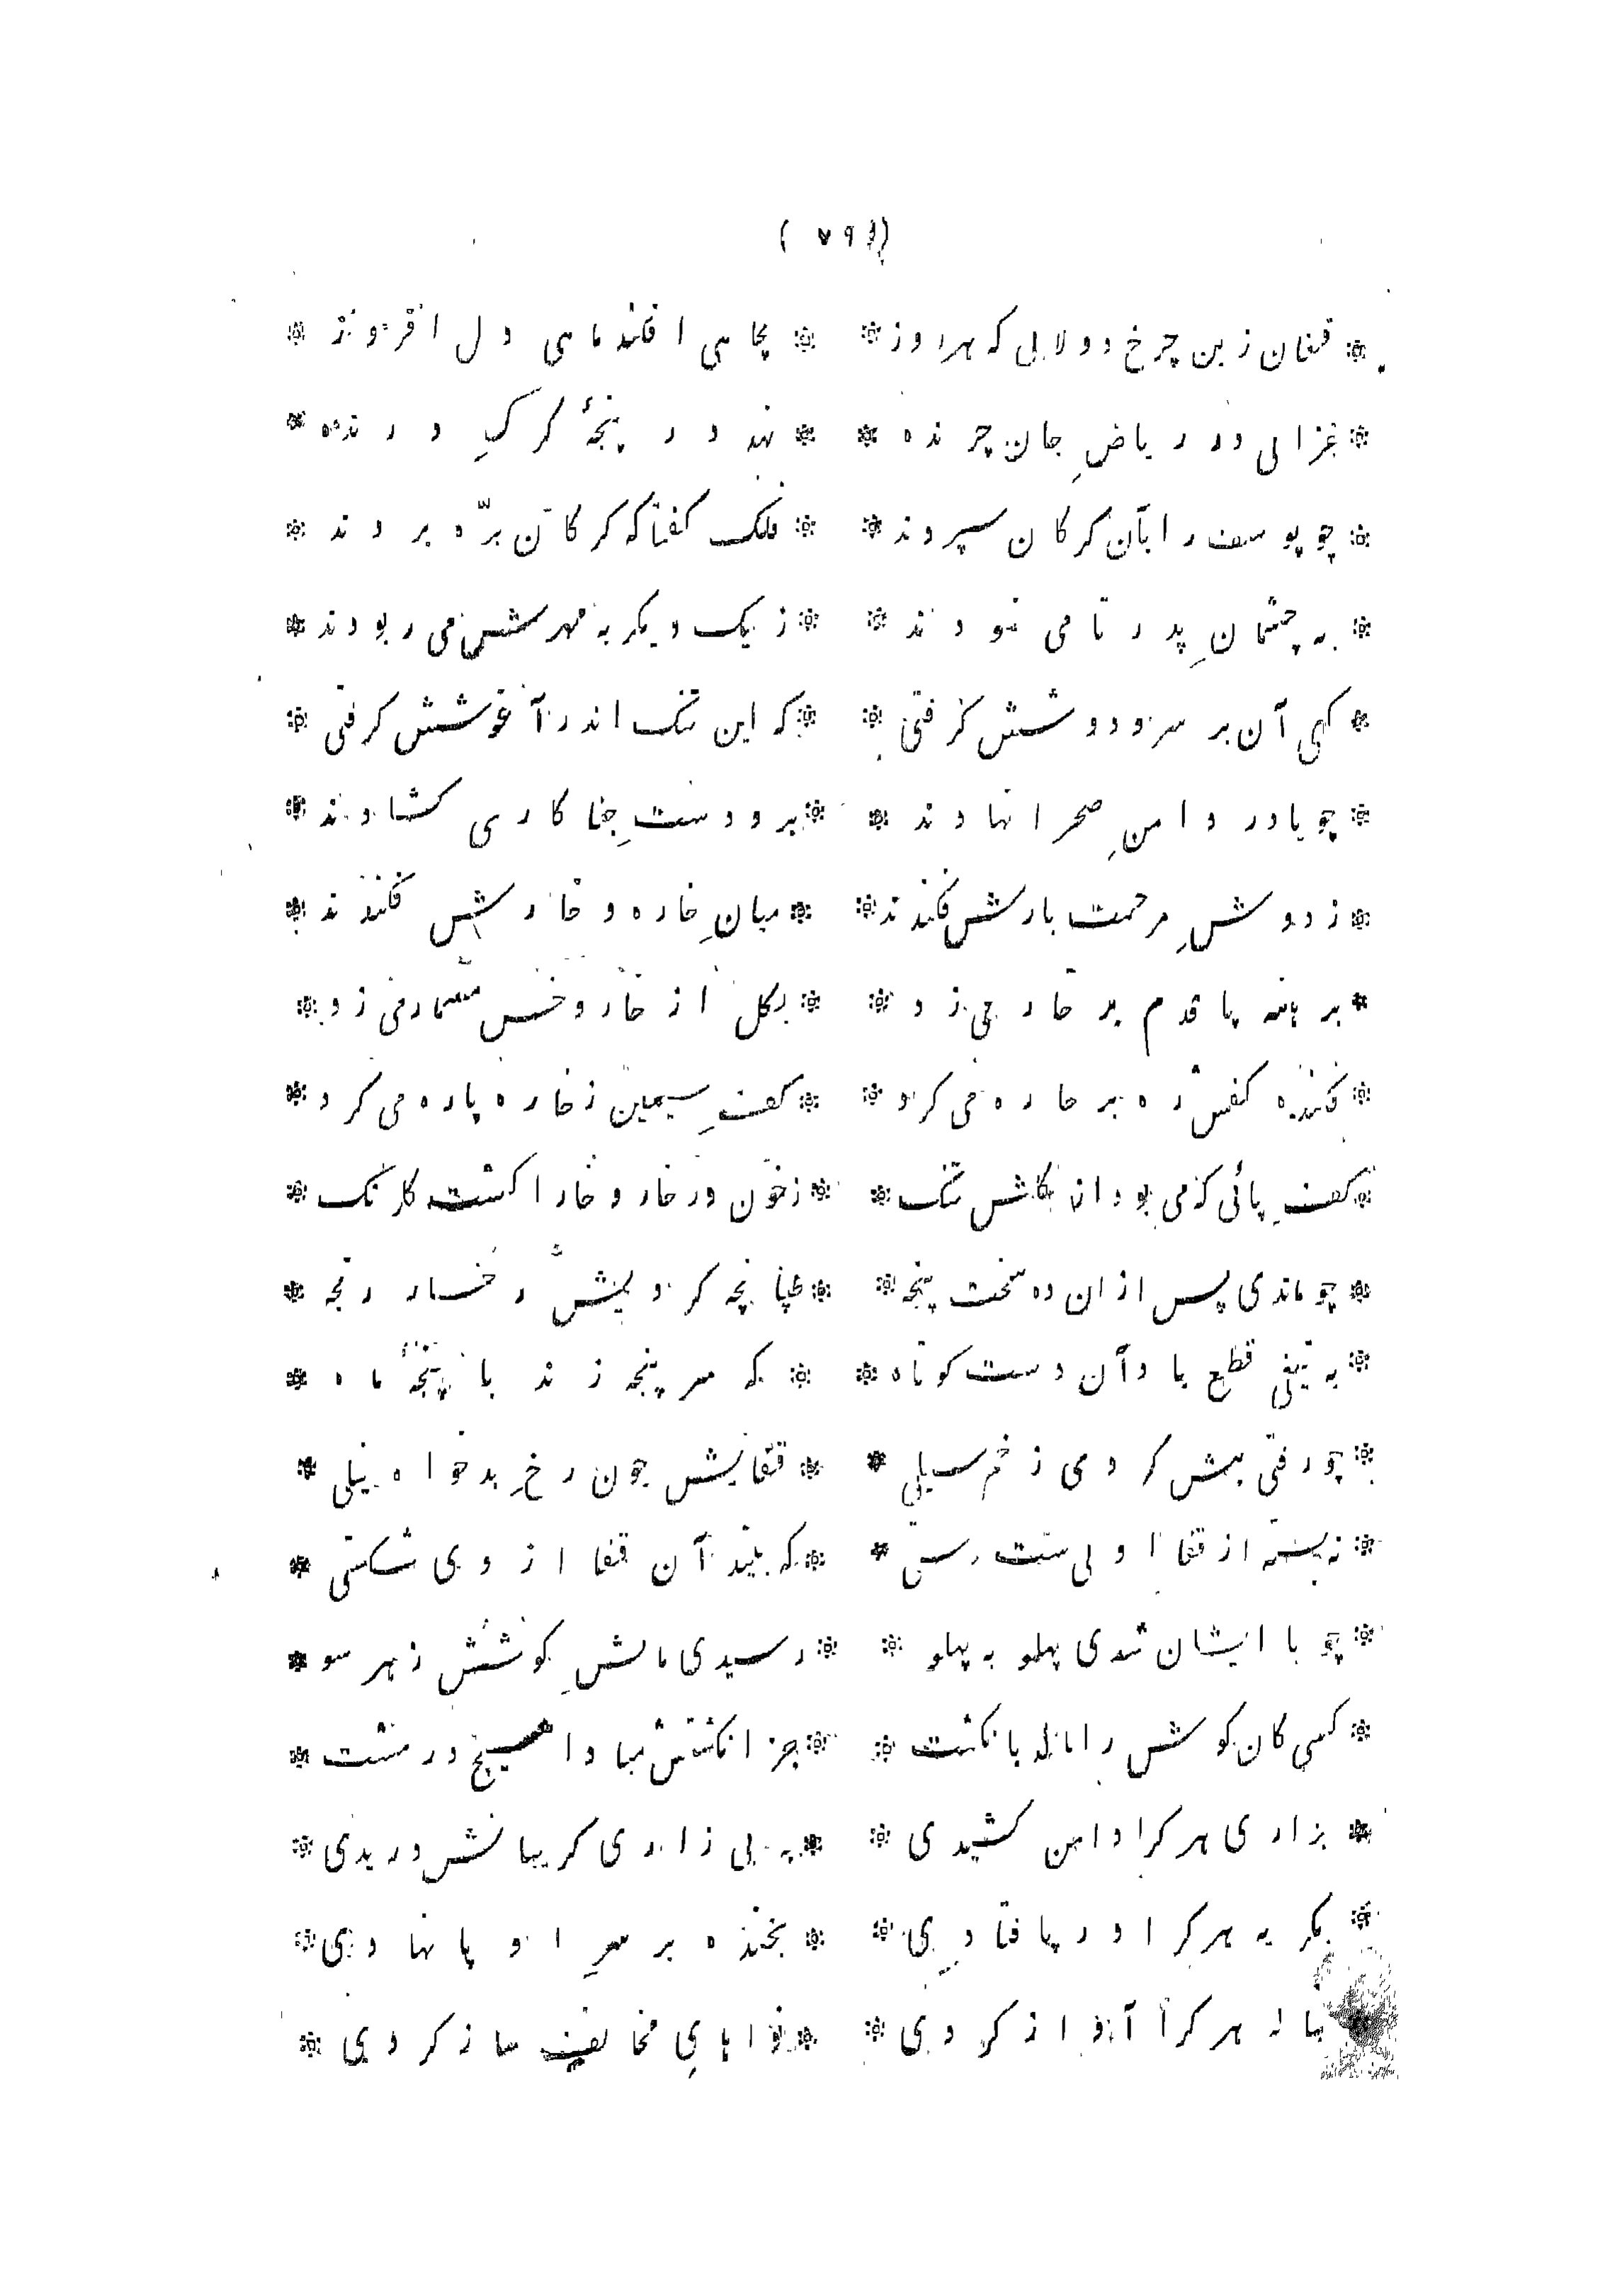 ( ۷۹ )
* فغان زین چرخ دولابی که هر روز * * بچاهی افکند ماهی دل افروز *
* غزالی در ریاضِ جان چرنده * * نهد در پنجهٔ گرگِ درنده *
* چو یوسف را بآن کرکان سپردند * * فلک کفتا که کرکان برّه بردند *
* به چشمانِ پدر تا می نمودند * * ز یک دیکر به مهرش می ربودند *
* کهی آن بر سر و دوشش کرفتی * * که این تنک اندر آغوشش کرفتی *
* چو پا در دامنِ صحرا نهادند * * برو دستِ جفا کاری کشادند *
* ز دوشِ مرحمت بارش فکندند * * میانِ خاره و خارش فکندند *
* برهنه پا قدم بر خار می زد * * بکل از خار و خس مسمار می زد *
* فکنده کفش ره بر خاره می کرد * * کفِ سیمین ز خاره پاره می کرد *
* کفِ پائی که می بود از کلش ننک * * ز خون در خار و خارا کشت کلرنک *
* چو ماندی پس ازان ده سخت پنجه * * طپانچه کردیش رخسار رنجه *
* به تیغی قطع باد آن دست کوتاه * * که سر پنجه زند با پنجهٔ ماه *
* چو رفتی پیش کردی زخم سیلی * * قفایش چون رخِ بدخواه نیلی *
* به بسته از قفا اولی ست دستی * * که بیند آن قفا از وی شکستی *
* چو با ایشان شدی پهلو به پهلو * * رسیدی مالشِ کوشش ز هر سو *
* کسی کان کوش را مالد بانکشت * * جز انکشتش مبادا هیچ در مشت *
* بزاری هر کرا دامن کشیدی * * به بی زاری کریبانش دریدی *
* بکریه هر کرا در پا فتادی * * بخنده بر سرِ او پا نهادی *
* بناله هر کرا آواز کردی * * نواهایِ مخالف ساز کردی *